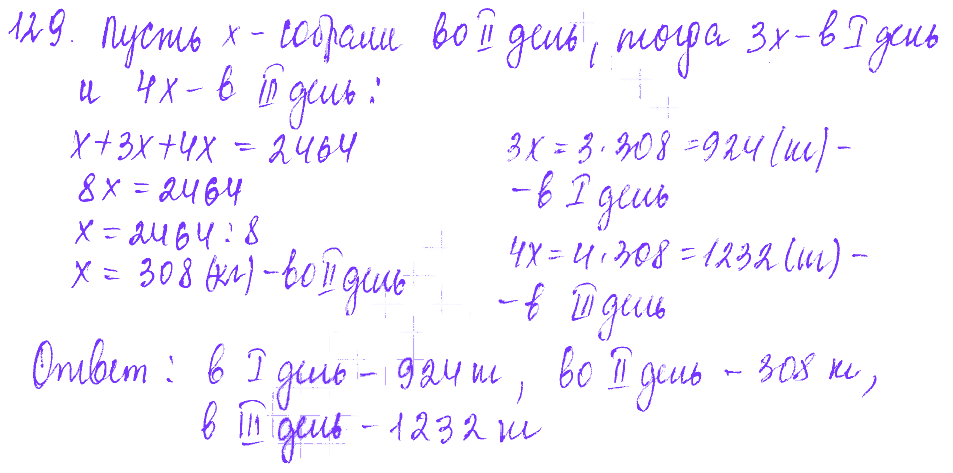 129. Пусть x - собрали во II день, тогда 3x - в I день
и 4x - в III день:
x+3x+4x = 2464
8x = 2464
x = 2464 : 8
x = 308 (кг) - во II день
3x = 3 · 308 = 924 (кг) -
- в I день
4x = 4 · 308 = 1232 (кг) -
- в III день
Ответ: в I день - 924 кг, во II день - 308 кг,
в III день - 1232 кг